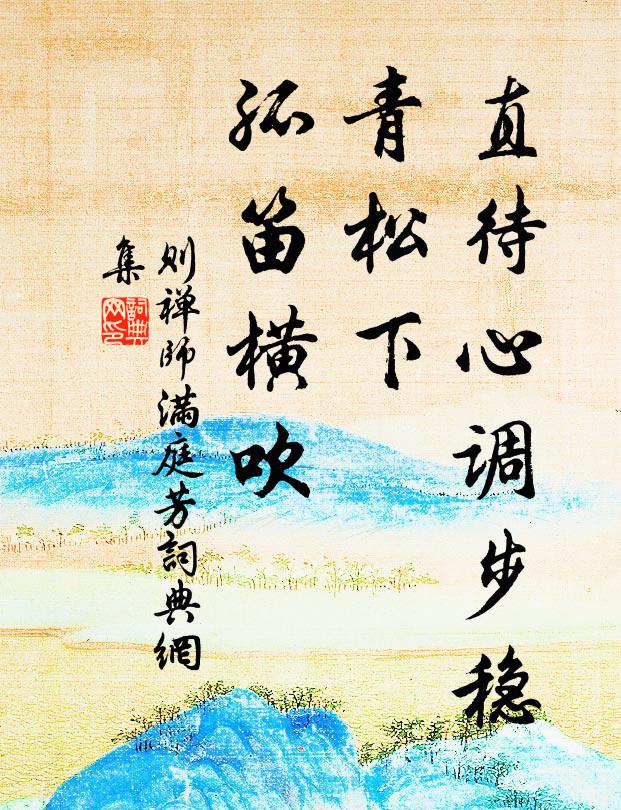 直待心调步稳
青松下
孤笛横吹
则禅师满庭芳詞典網
集
詞典
网印